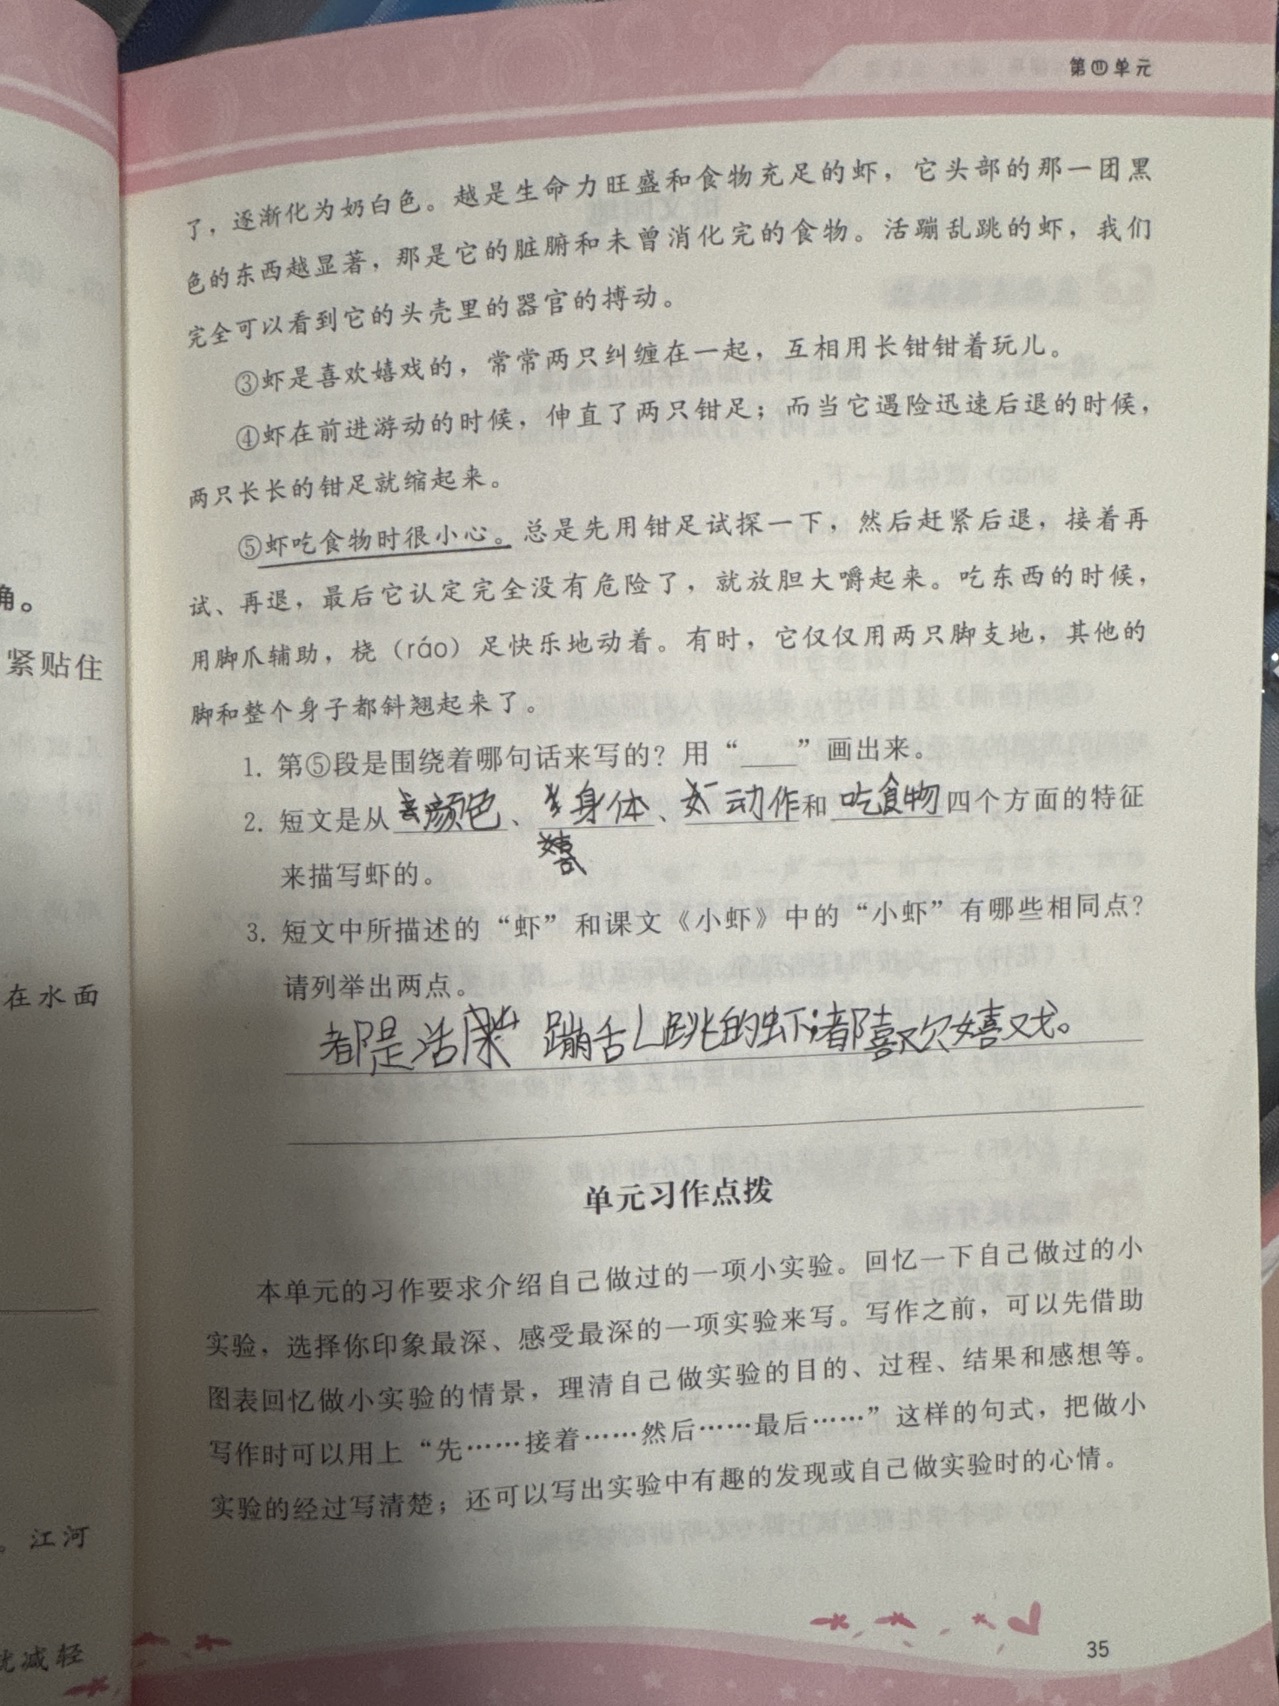 第四单元
了，逐渐化为奶白色。越是生命力旺盛和食物充足的虾，它头部的那一团黑
色的东西越显著，那是它的脏腑和未曾消化完的食物。活蹦乱跳的虾，我们
完全可以看到它的头壳里的器官的搏动。
③虾是喜欢嬉戏的，常常两只纠缠在一起，互相用长钳钳着玩儿。
④虾在前进游动的时候，伸直了两只钳足；而当它遇险迅速后退的时候，
两只长长的钳足就缩起来。
⑤虾吃食物时很小心。总是先用钳足试探一下，然后赶紧后退，接着再
试、再退，最后它认定完全没有危险了，就放胆大嚼起来。吃东西的时候，
用脚爪辅助，桡（ráo）足快乐地动着。有时，它仅仅用两只脚支地，其他的
脚和整个身子都斜翘起来了。
1. 第⑤段是围绕着哪句话来写的？用“____”画出来。
2. 短文是从颜色、身体、动作和吃食物四个方面的特征
来描写虾的。
3. 短文中所描述的“虾”和课文《小虾》中的“小虾”有哪些相同点？
请列举出两点。
都是活 蹦乱跳的虾；都喜欢嬉戏。
单元习作点拨
本单元的习作要求介绍自己做过的一项小实验。回忆一下自己做过的小
实验，选择你印象最深、感受最深的一项实验来写。写作之前，可以先借助
图表回忆做小实验的情景，理清自己做实验的目的、过程、结果和感想等。
写作时可以用上“先……接着……然后……最后……”这样的句式，把做小
实验的经过写清楚；还可以写出实验中有趣的发现或自己做实验时的心情。
35
确。
紧贴住
在水面
。江河
就减轻